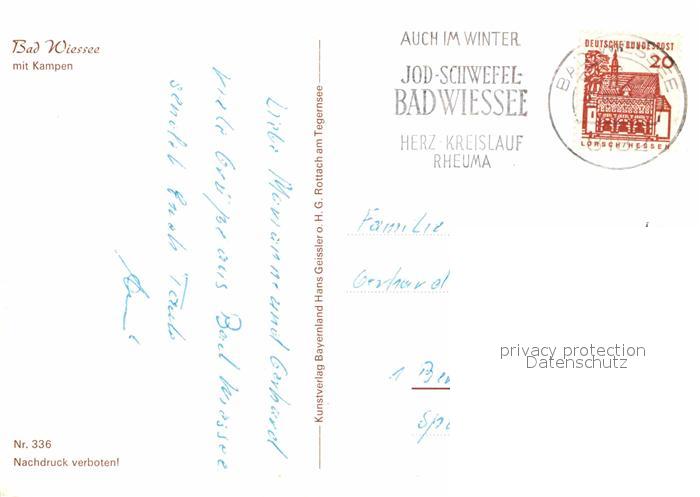 Bad Wiessee
mit Kampen
Liebe Marianne und Gerhard
Viele Grüße aus Bad Wiessee
sendet Euch Tante
Nr. 336
Nachdruck verboten!
Kunstverlag Bayernland Hans Geissler o. H. G. Rottach am Tegernsee
AUCH IM WINTER
JOD-SCHWEFEL-
BAD WIESSEE
HERZ-KREISLAUF
RHEUMA
DEUTSCHE BUNDESPOST
20
LORSCH/HESSEN
BAD WIESSEE
Familie
Gerhard
1 Be
Sp
privacy protection
Datenschutz